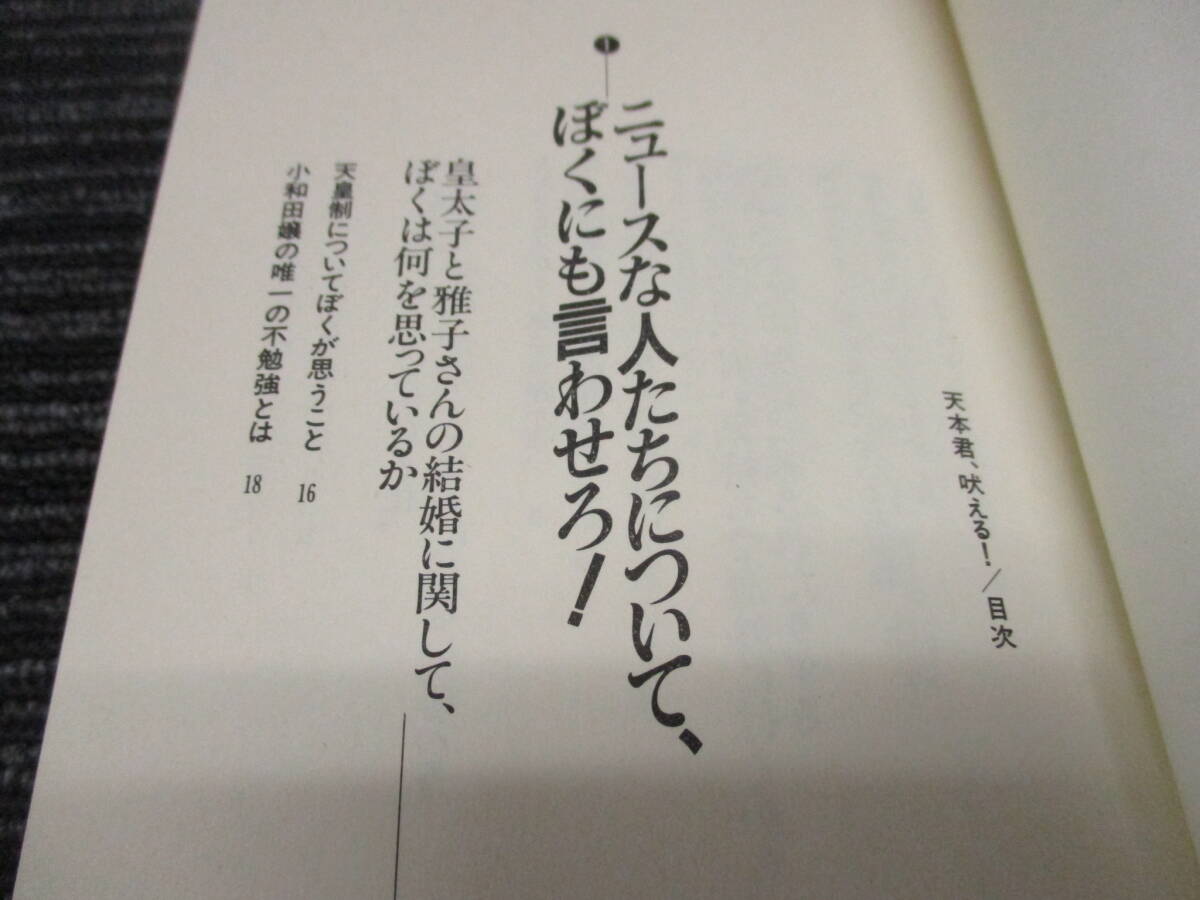 天本君、吠える!/目次
❶
ニュースな人たちについて、
ぼくにも言わせろ!
皇太子と雅子さんの結婚に関して、
ぼくは何を思っているか
天皇制についてぼくが思うこと 16
小和田嬢の唯一の不勉強とは 18